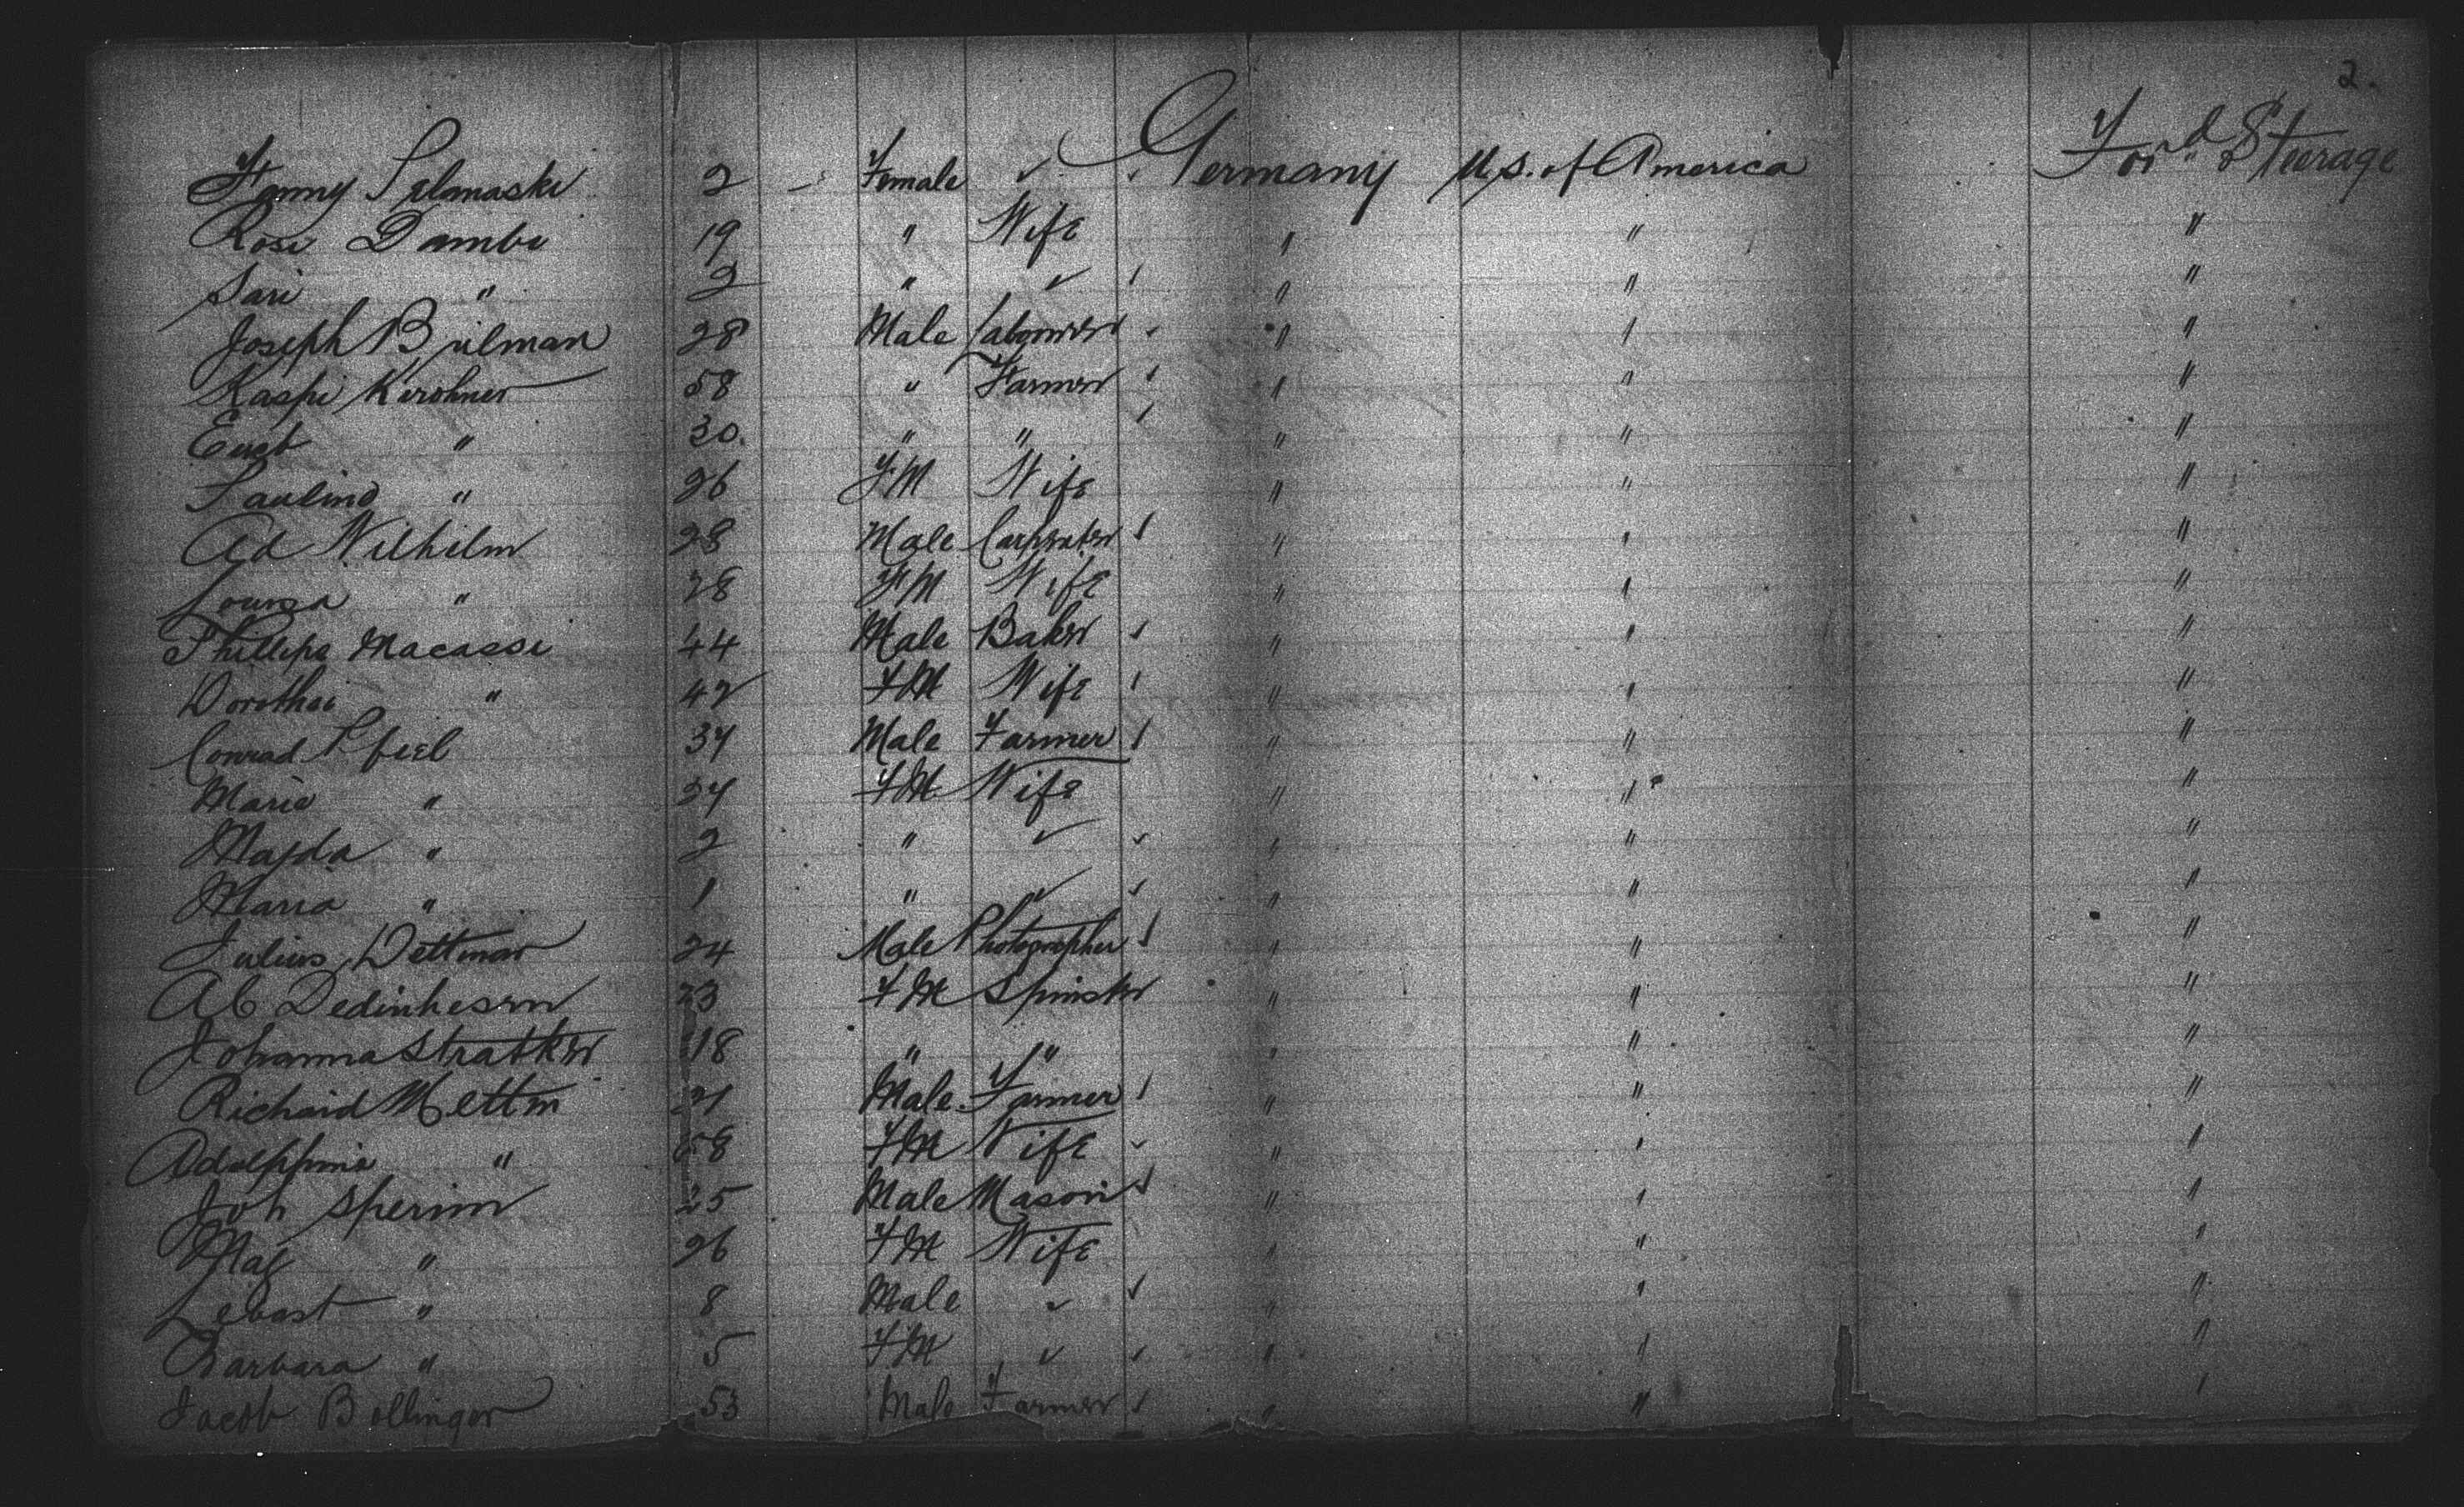 2.
Fanny Selmaske 2 Female ✓ Germany U.S. of America For'd Steerage
Rosi Dambe 19 " Wife " " "
Sari " 2 " ✓ " " "
Joseph Bjulman 28 Male Labourer " " "
Kaspi Kerohner 58 " Farmer " " "
Ernst " 30 " " " " "
Pauline " 26 FM Wife " " "
Ad Wilhilm 28 Male Carpenter " " "
Louisa " 28 FM Wife " " "
Phillipa Macasse 44 Male Baker " " "
Dorothai " 42 FM Wife " " "
Conrad Pfiel 34 Male Farmer " " "
Marie " 34 FM Wife " " "
Majda " 2 " ✓ " " "
Maria " 1 " ✓ " " "
Julius Dettmar 24 Male Photographer " " "
Ab Dedinhesem 23 FM Spinster " " "
Johanna Stratker 18 " " " " "
Richard Mettin 21 Male Farmer " " "
Adolphine " 58 FM Wife " " "
Joh Sperinn 25 Male Mason " " "
Mag " 26 FM Wife " " "
Sebast " 8 Male ✓ " " "
Barbara " 5 FM ✓ " " "
Jacob Bollinger 53 Male Farmer " " "